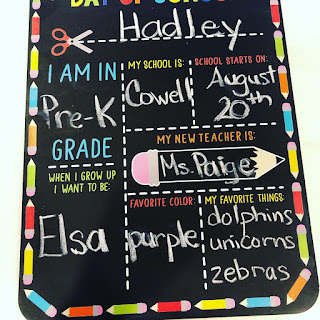 DAY OF SCHOOL
Hadley
I AM IN
Pre-K
GRADE
MY SCHOOL IS:
Cowell
SCHOOL STARTS ON:
August
20th
MY NEW TEACHER IS:
Ms. Paige
WHEN I GROW UP
I WANT TO BE:
Elsa
FAVORITE COLOR:
purple
MY FAVORITE THINGS:
dolphins
unicorns
zebras